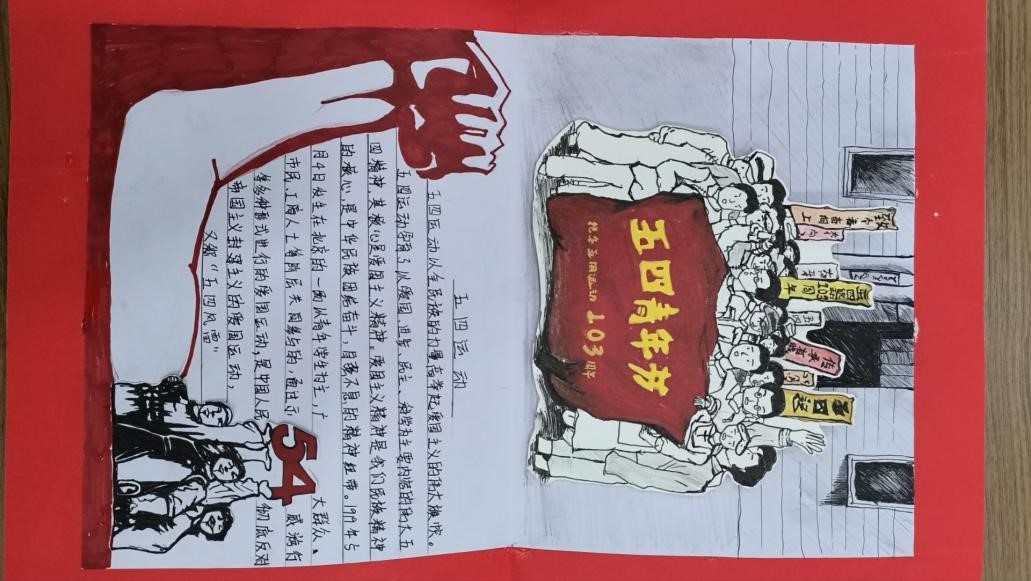 致今青者向上
五四
103周年
传承
五四运
五四青年节
纪念五四运动103周年
五四运动
五四运动以全民族的力量高举起爱国主义的伟大旗帜。
五四运动孕育了以爱国、进步、民主、科学为主要内容的伟大五
四精神,其核心是爱国主义精神。爱国主义精神是我们民族精神
的核心,是中华民族团结奋斗,自强不息的精神纽带。1919年5
月4日发生在北京的一场以青年学生为主,广大群众、
市民、工商人士等阶层共同参与的,通过示威游行
等多种形式进行的爱国运动,是中国人民彻底反对
帝国主义封建主义的爱国运动,
又称“五四风雷”
54